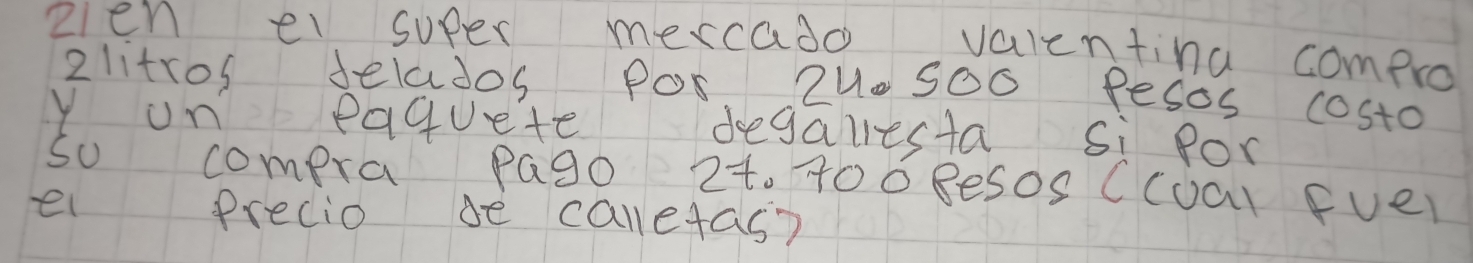 2) en el super mercado valentina compro
2 litros delados por 24.500 Pesos costo
y un paquete degallesta si por
su compra pago 27.700 Pesos ¿cual fuel
el precio de calletas?